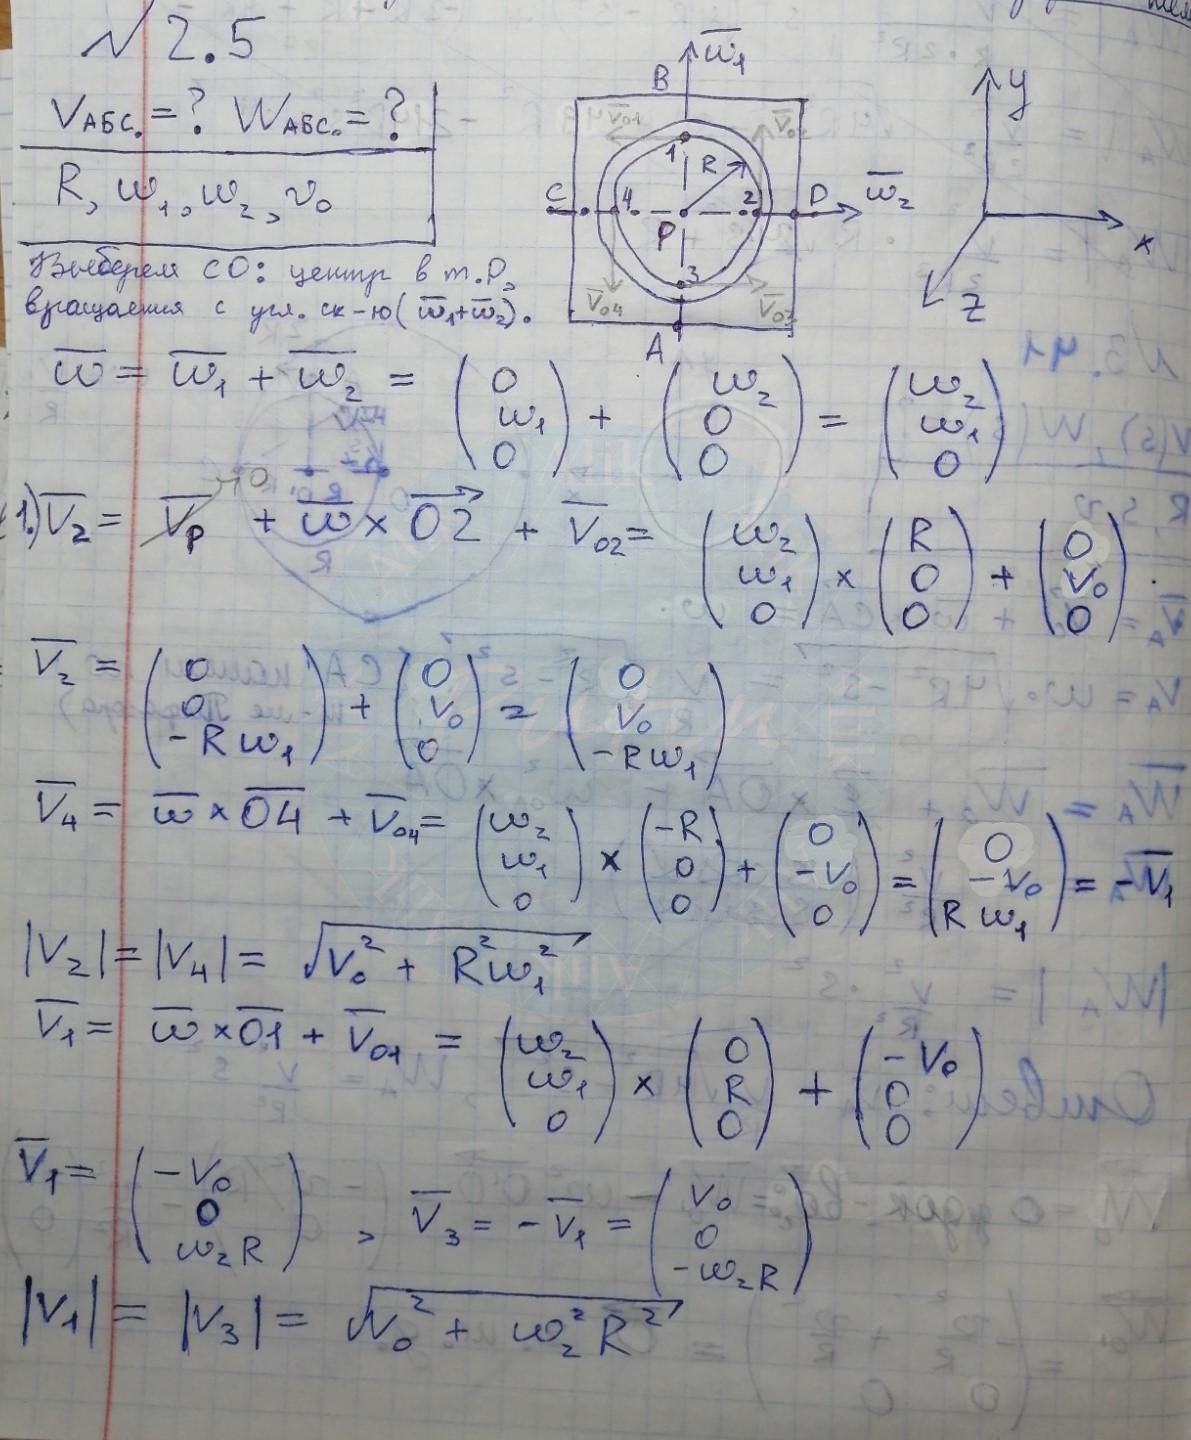 № 2.5
V_АБС. = ? W_АБС. = ?
R, ω₁, ω₂, v₀
Выберем СО: центр в т. P,
вращается с угл. ск-ю (ω̅₁+ω̅₂).
ω̅₁
B
V̅₀₁
1
R
C
4
2
D
ω̅₂
P
3
V̅₀₄
A
y
x
z
ω̅ = ω̅₁ + ω̅₂ = (0 ω₁ 0) + (ω₂ 0 0) = (ω₂ ω₁ 0)
1.) V̅₂ = V̅_P + ω̅ × O̅2̅ + V̅₀₂ = (ω₂ ω₁ 0) × (R 0 0) + (0 V₀ 0)
V̅₂ = (0 0 -Rω₁) + (0 V₀ 0) = (0 V₀ -Rω₁)
V̅₄ = ω̅ × O̅4̅ + V̅₀₄ = (ω₂ ω₁ 0) × (-R 0 0) + (0 -V₀ 0) = (0 -V₀ Rω₁) = -V̅₁
|V₂| = |V₄| = √(V₀² + R²ω₁²)
V̅₁ = ω̅ × O̅1̅ + V̅₀₁ = (ω₂ ω₁ 0) × (0 R 0) + (-V₀ 0 0)
V̅₁ = (-V₀ 0 ω₂R) , V̅₃ = -V̅₁ = (V₀ 0 -ω₂R)
|V₁| = |V₃| = √(V₀² + ω₂²R²)